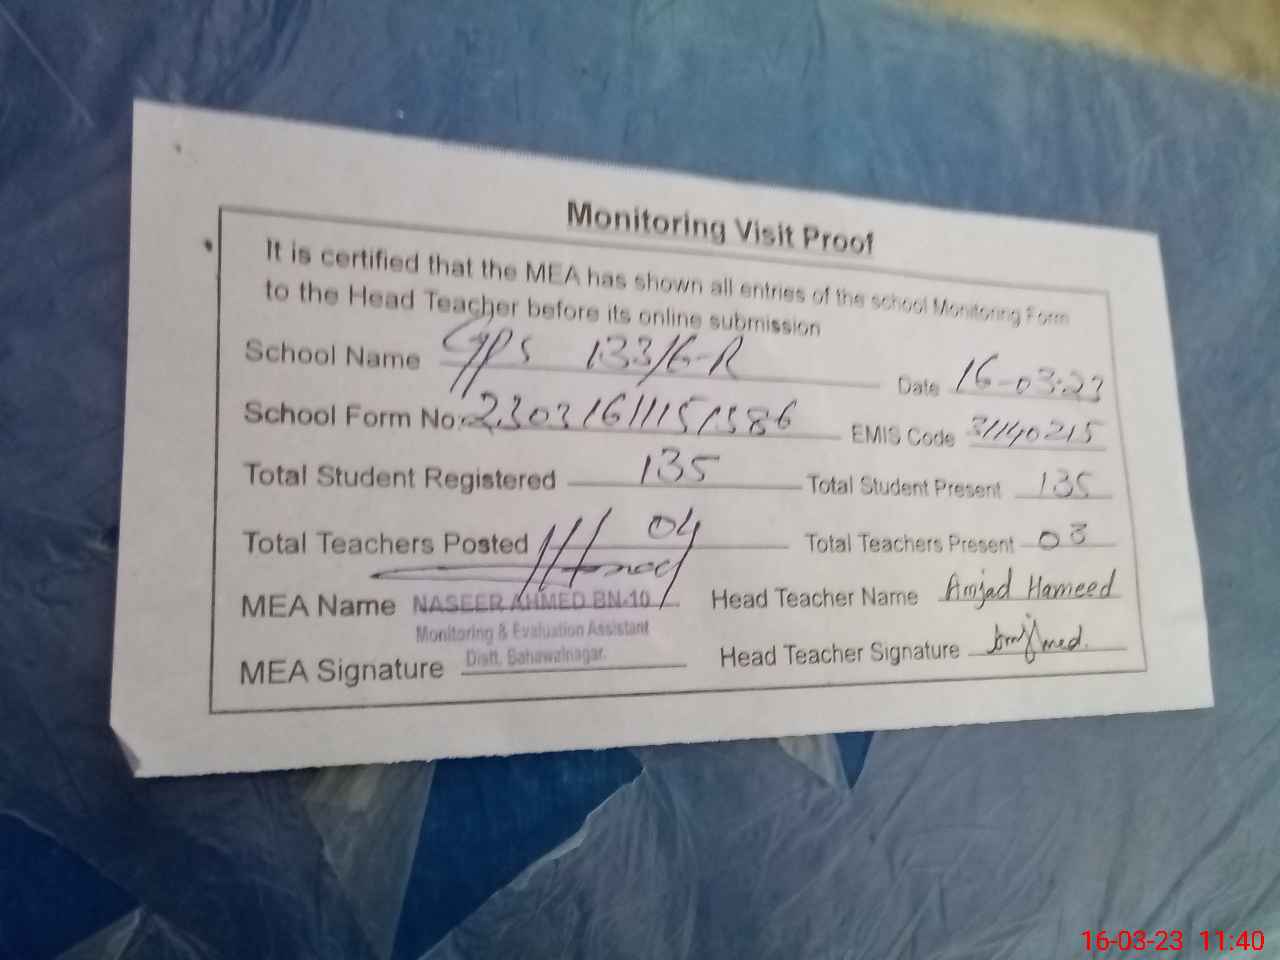 Monitoring Visit Proof
It is certified that the MEA has shown all entries of the school Monitoring Form
to the Head Teacher before its online submission
School Name GPS 133/6-R Date 16-03-23
School Form No: 23031611151586 EMIS Code 31140215
Total Student Registered 135 Total Student Present 135
Total Teachers Posted 04 Total Teachers Present 03
MEA Name NASEER AHMED BN-10 Head Teacher Name Amjad Hameed
Monitoring & Evaluation Assistant
Distt. Bahawalnagar.
MEA Signature Head Teacher Signature
16-03-23 11:40